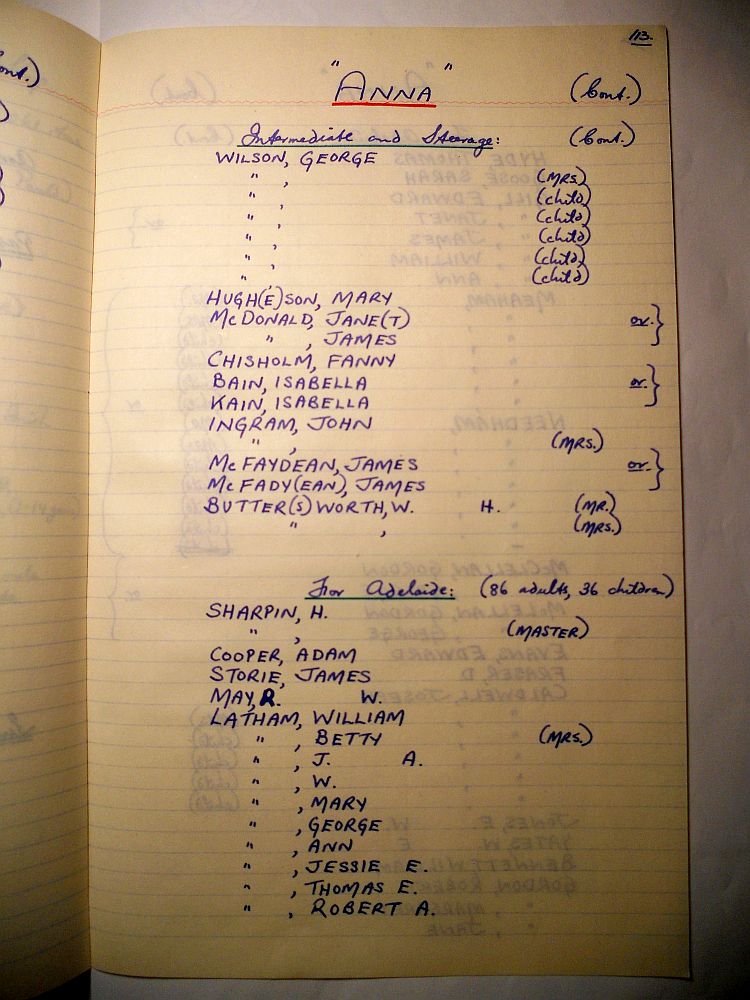 113.
"ANNA" (Cont.)
Intermediate and Steerage: (Cont.)
WILSON, GEORGE
" , (MRS.)
" , (child)
" , (child)
" , (child)
" , (child)
" , (child)
HUGH(E)SON, MARY
McDONALD, JANE(T) or. }
" , JAMES
CHISHOLM, FANNY
BAIN, ISABELLA or. }
KAIN, ISABELLA
INGRAM, JOHN
" , (MRS.)
McFAYDEAN, JAMES or. }
McFADY(EAN), JAMES
BUTTER(S)WORTH, W. H. (MR.)
" , (MRS.)
For Adelaide: (86 adults, 36 children)
SHARPIN, H.
" , (MASTER)
COOPER, ADAM
STORIE, JAMES
MAY, R. W.
LATHAM, WILLIAM
" , BETTY (MRS.)
" , J. A.
" , W.
" , MARY
" , GEORGE
" , ANN
" , JESSIE E.
" , THOMAS E.
" , ROBERT A.